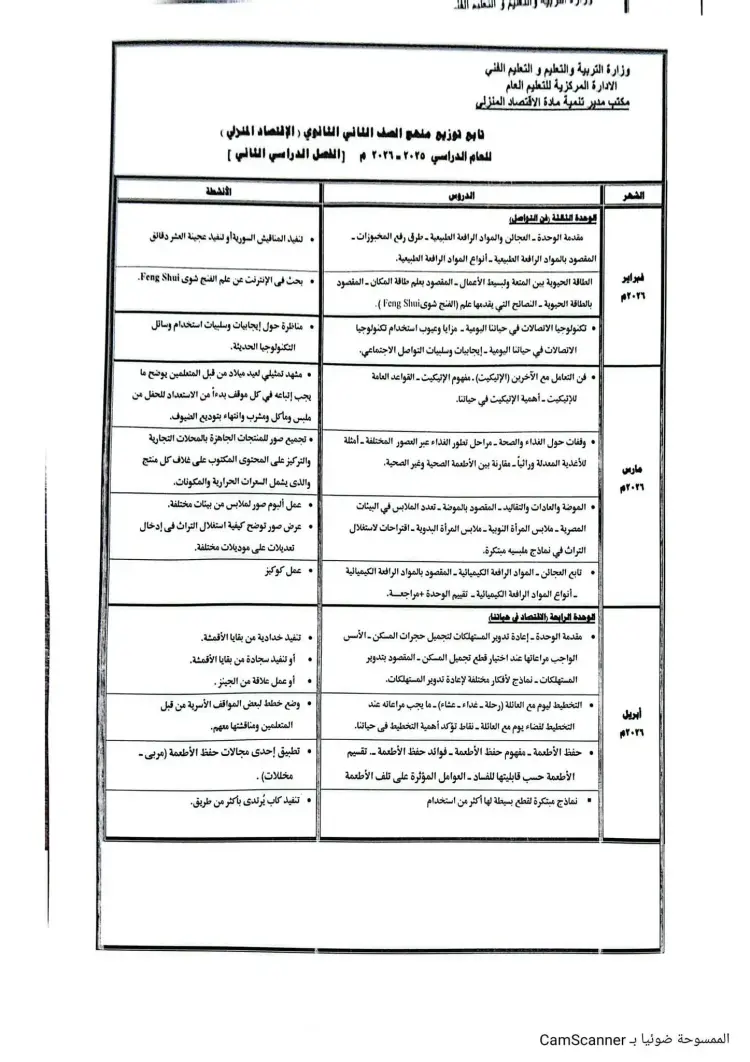 وزارة التربية والتعليم و التعليم الفني
وزارة التربية والتعليم و التعليم الفني
الادارة المركزية للتعليم العام
مكتب مدير تنمية مادة الاقتصاد المنزلى
تابع توزيع منهج الصف الثاني الثانوي ( الإقتصاد المنزلي )
للعام الدراسي ٢٠٢٥ - ٢٠٢٦ م [ الفصل الدراسي الثاني ]
الشهر
الدروس
الأنشطة
فبراير
٢٠٢٦م
الوحدة الثالثة (فن التواصل)
مقدمة الوحدة – العجائن والمواد الرافعة الطبيعية – طرق رفع المخبوزات –
المقصود بالمواد الرافعة الطبيعية – أنواع المواد الرافعة الطبيعية.
• تنفيذ المناقيش السورية أو تنفيذ عجينة العشر دقائق
الطاقة الحيوية بين المتعة وتبسيط الأعمال – المقصود بعلم طاقة المكان – المقصود
بالطاقة الحيوية – النصائح التي يقدمها علم (الفنج شوى Feng Shui ).
• بحث فى الإنترنت عن علم الفنج شوى Feng Shui.
• تكنولوجيا الاتصالات في حياتنا اليومية – مزايا وعيوب استخدام تكنولوجيا
الاتصالات في حياتنا اليومية – إيجابيات وسلبيات التواصل الاجتماعي.
• مناظرة حول إيجابيات وسلبيات استخدام وسائل
التكنولوجيا الحديثة.
مارس
٢٠٢٦م
• فن التعامل مع الآخرين (الإتيكيت) – مفهوم الإتيكيت – القواعد العامة
للإتيكيت – أهمية الإتيكيت في حياتنا.
• مشهد تمثيلي لعيد ميلاد من قبل المتعلمين يوضح ما
يجب إتباعه في كل موقف بدءاً من الاستعداد للحفل من
ملبس ومأكل ومشرب وانتهاء بتوديع الضيوف.
• وقفات حول الغذاء والصحة – مراحل تطور الغذاء عبر العصور المختلفة – أمثلة
للأغذية المعدلة وراثياً – مقارنة بين الأطعمة الصحية وغير الصحية.
• تجميع صور للمنتجات الجاهزة بالمحلات التجارية
والتركيز على المحتوى المكتوب على غلاف كل منتج
والذى يشمل السعرات الحرارية والمكونات.
• الموضة والعادات والتقاليد – المقصود بالموضة – تعدد الملابس في البيئات
المصرية – ملابس المرأة النوبية – ملابس المرأة البدوية – اقتراحات لاستغلال
التراث في نماذج ملبسيه مبتكرة.
• عمل ألبوم صور لملابس من بيئات مختلفة.
• عرض صور توضح كيفية استغلال التراث فى إدخال
تعديلات على موديلات مختلفة.
• تابع العجائن – المواد الرافعة الكيميائية – المقصود بالمواد الرافعة الكيميائية
– أنواع المواد الرافعة الكيميائية – تقييم الوحدة +مراجعـة.
• عمل كوكيز
أبريل
٢٠٢٦م
الوحدة الرابعة (الاقتصاد فى حياتنا)
• مقدمة الوحدة – إعادة تدوير المستهلكات لتجميل حجرات المسكن – الأسس
الواجب مراعاتها عند اختيار قطع تجميل المسكن – المقصود بتدوير
المستهلكات – نماذج لأفكار مختلفة لإعادة تدوير المستهلكات.
• تنفيذ خدادية من بقايا الأقمشة.
• أو تنفيذ سجادة من بقايا الأقمشة.
• أو عمل علاقة من الجينز .
• التخطيط ليوم مع العائلة (رحلة – غداء – عشاء) – ما يجب مراعاته عند
التخطيط لقضاء يوم مع العائلة – نقاط تؤكد أهمية التخطيط فى حياتنا.
• وضع خطط لبعض المواقف الأسرية من قبل
المتعلمين ومناقشتها معهم.
• حفظ الأطعمة – مفهوم حفظ الأطعمة – فوائد حفظ الأطعمة – تقسيم
الأطعمة حسب قابليتها للفساد – العوامل المؤثرة على تلف الأطعمة
• تطبيق إحدى مجالات حفظ الأطعمة (مربى –
مخللات) .
▪ نماذج مبتكرة لقطع بسيطة لها أكثر من استخدام
• تنفيذ كاب يُرتدى بأكثر من طريق.
الممسوحة ضوئيا بـ CamScanner